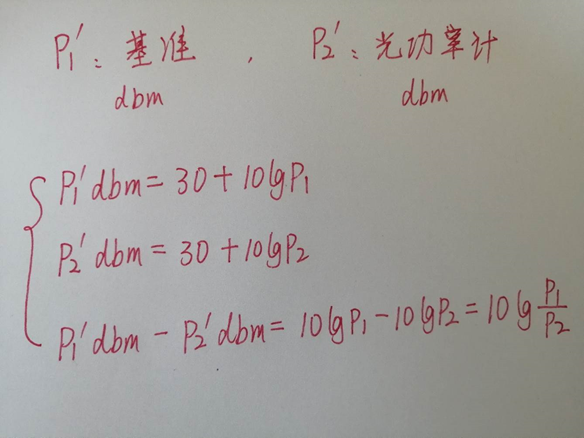 P₁′：基准 ， P₂′：光功率计
dbm dbm
P₁′dbm = 30 + 10lgP₁
P₂′dbm = 30 + 10lgP₂
P₁′dbm - P₂′dbm = 10lgP₁ - 10lgP₂ = 10lg P₁/P₂